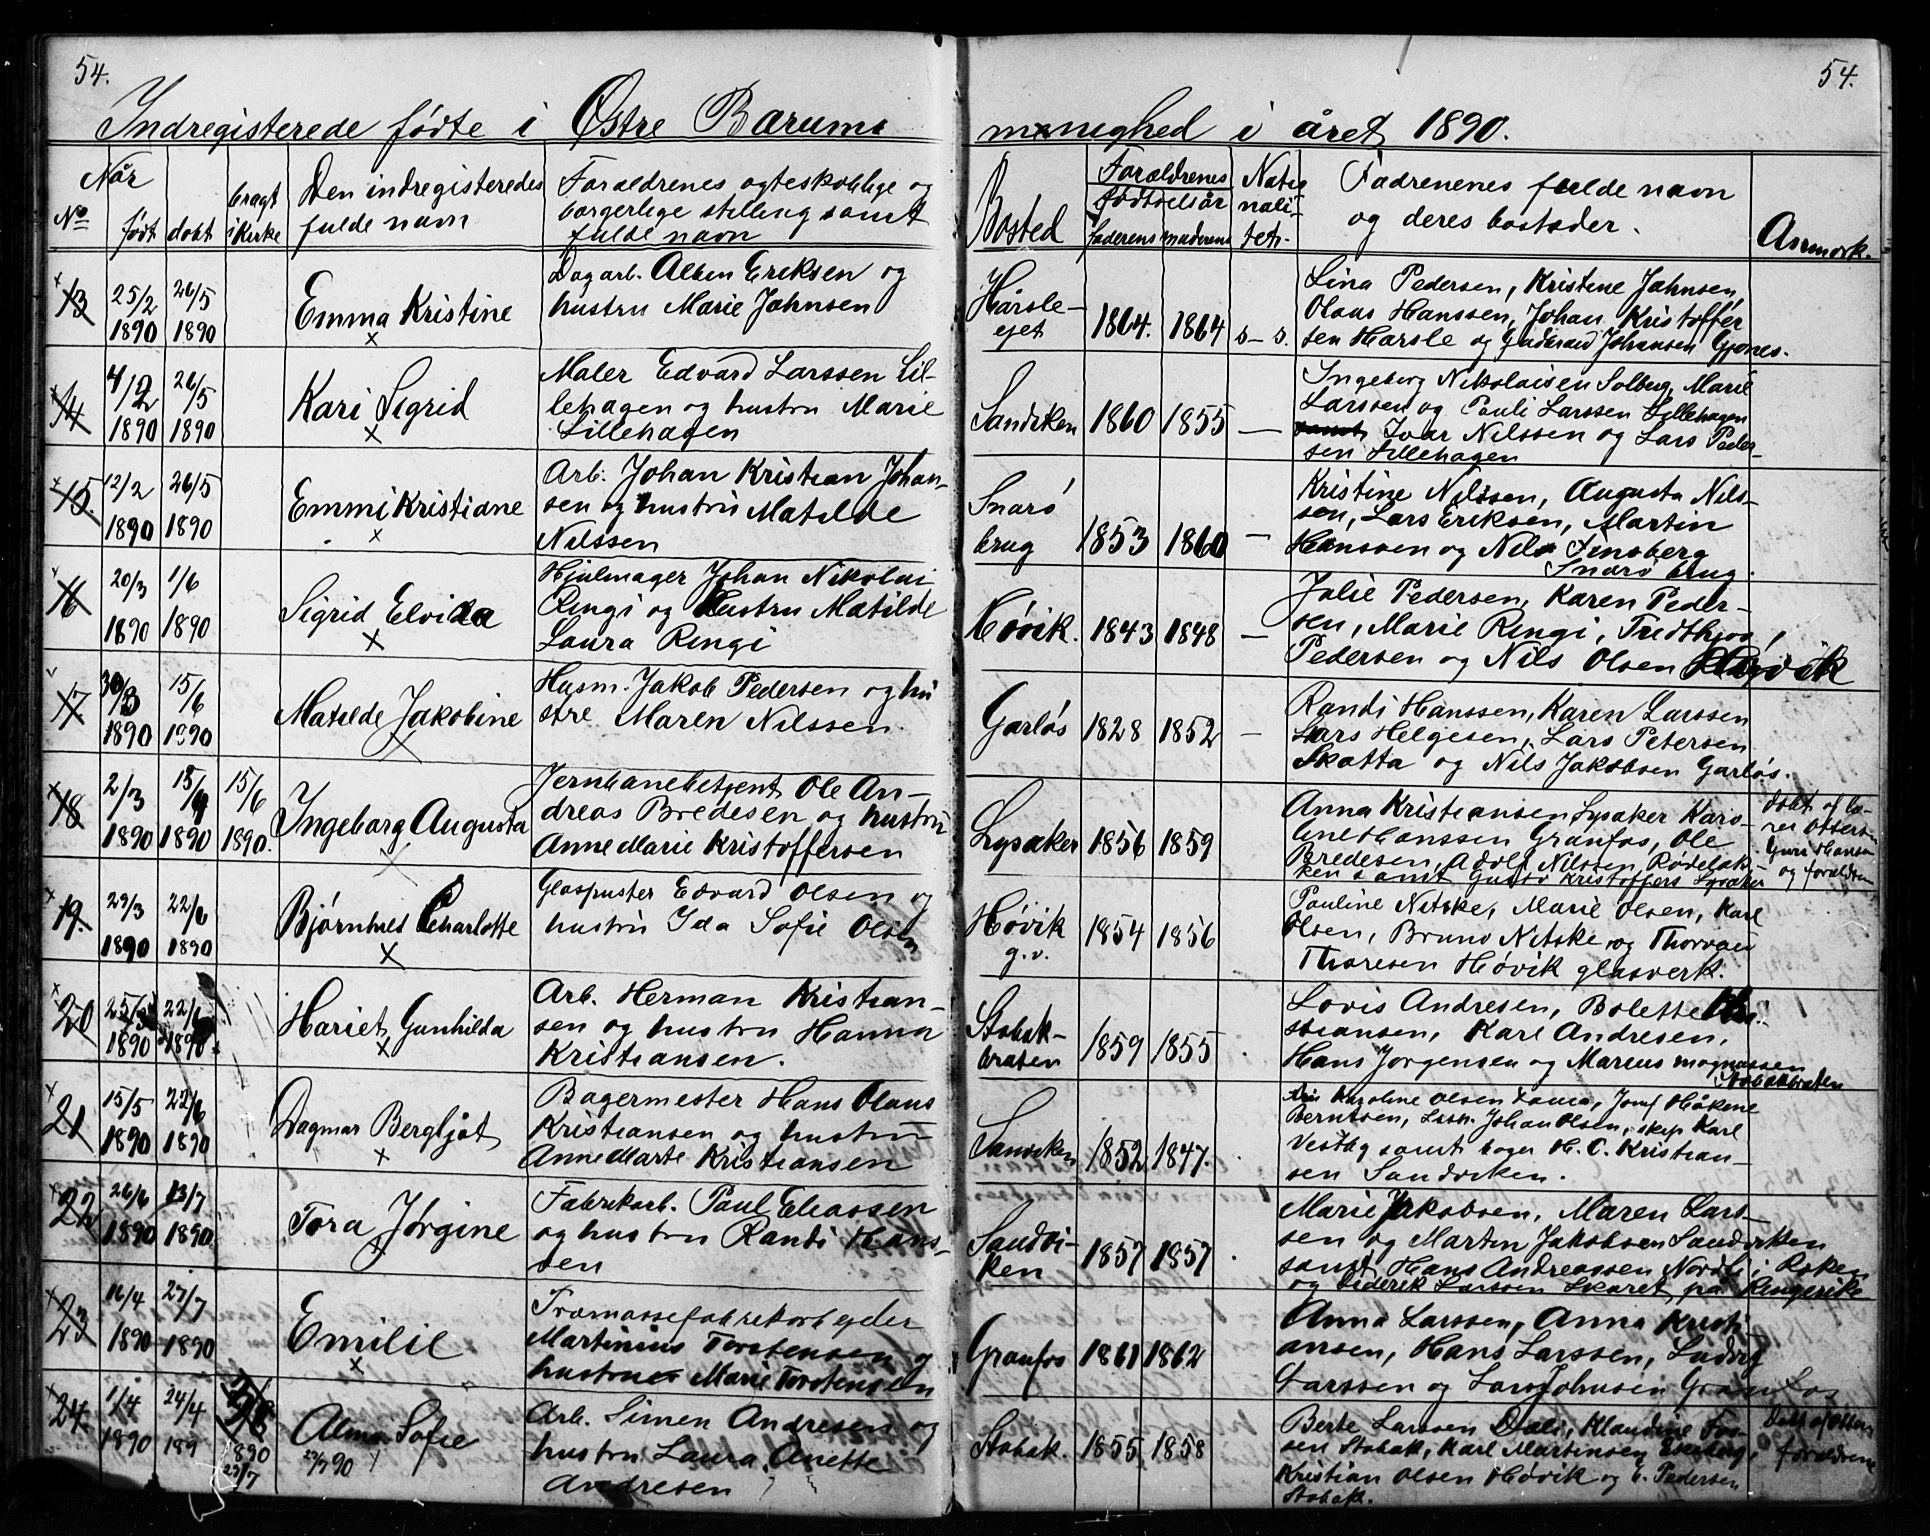 54.
54.
Indregisterede fødte i Østre Bærums
menighed i året 1890.
Når
No
født
døbt
bragt i Kirke
Den indregisteredes
fulde navn
Forældrenes ægteskablige og
borgerlige stilling samt
fulde navn
Bosted
Forældrenes
fødselsår
faderens
moderens
Natio
nali-
tet.
Fadrenenes fulde navn
og deres bosteder.
Anmærk.
13
25/2 1890
26/5 1890
Emma Kristine
Dagarb. Alben Eriksen og
hustru Marie Johnsen
Hårsle-
ejet
1864.
1864
s-s.
Lina Pedersen, Kristine Johnsen
Olaus Hanssen, Johan Kristoffer
sen Harsle og Gudbrand Johansen Gjønes.
14
4/2 1890
26/5 1890
Kari Sigrid
Maler Edvard Larssen Lil-
lehagen og hustru Marie
Lillehagen
Sandviken
1860
1855
Ingeborg Nikolaisen Solberg, Marie
Larssen og Pauli Larssen Lillehagen
samt Ivar Nilssen og Lars Peder-
sen Lillehagen
15.
12/2 1890
26/5 1890
Emmi Kristiane
Arb. Johan Kristian Johan-
sen og hustru Matilde
Nilssen
Snarø
brug
1853
1860
Kristine Nilssen, Augusta Nils-
sen, Lars Eriksen, Martin
Hanssen og Nils Finsberg
Snarø brug.
16
20/3 1890
1/6 1890
Sigrid Elvida
Hjulmager Johan Nikolai
Ringi og Hustru Matilde
Laura Ringi
Høvik.
1843
1848
Julie Pedersen, Karen Peder-
sen, Marie Ringi, Fredthjov
Pedersen og Nils Olsen Høvik
17
30/3 1890
15/6 1890
Matilde Jakobine
Husm. Jakob Pedersen og hu
stre Maren Nilssen.
Garløs
1828
1852
Randi Hanssen, Karen Larssen
Lars Helgesen, Lars Petersen
Skotta og Nils Jakobsen Garløs.
18
2/3 1890
15/4 1890
15/6 1890.
Ingeborg Augusta
Jernbanebetjent Ole An-
dreas Bredesen og hustru
Anne Marie Kristoffersen
Lysaker
1856
1859
Anna Kristiansen Lysaker Karo-
line Hanssen Granfos, Ole
Bredesen, Adolf Nilsen, Rødeløk-
ken samt Gustav Kristoffers Lysaker
døbt af læ-
rer Otters
Guri Hansen
og forældrene
19.
29/3 1890
22/6 1890
Bjørnhild Charlotte
Glaspuster Edvard Olsen og
hustru Ida Sofie Olsen
Høvik
g.v.
1854
1856
Pauline Nitske, Marie Olsen, Karl
Olsen, Bruno Nitske og Thorvald
Thoresen Høvik glasverk.
20
25/3 1890
22/6 1890
Hariet Gunhilda
Arb. Herman Kristian-
sen og hustru Hanna
Kristiansen.
Stabæk-
braten
1859
1855
Lovis Andresen, Bolette Kri-
stiansen, Karl Andresen,
Hans Jørgensen og Marcus Magnussen
Stabækbraten
21
15/5 1890
22/6 1890
Dagmar Bergljot
Bagermester Hans Olaus
Kristiansen og hustru
Anne Marte Kristiansen
Sandviken
1852
1847.
Karoline Olsen Jomf. Håkene
Berntsen, Johan Olsen, skip Karl
Vestby samt bager H. C. Kristian-
sen Sandviken.
22
26/6 1890
13/7 1890
Tora Jørgine
Fabrikarb. Paul Eliassen
og hustru Randi Hans-
sen
Sandvi-
ken
1857
1857
Marie Jakobsen, Maren Lars-
sen og Marten Jakobsen Sandviken
samt Hans Andreassen Nordli i Røken
og Diderik Larssen Skaret på Ringerike
23
16/4 1890
27/7 1890
Emilie
Træmassefabrikarbejder
Martinius Torstensen og
hustrue Marie Torstensen
Granfos
1861
1862
Anna Larssen, Anna Kristi
ansen, Hans Larssen, Ludvig
Larssen og Lars Johnsen Granfos
24.
1/4 1890
24/4 189
1890
27/7
Alma Sofie
27/7 90
Arb. Simen Andresen og
hustru Laura Anette
Andresen
Stabæk.
1855
1858
Berte Larssen Dæli, Klaudine Fos-
sen Stabæk, Karl Martinsen Egeberg,
Kristian Olsen Høvik og E. Pedersen
Stabæk.
Døbt af Otters
forældrene